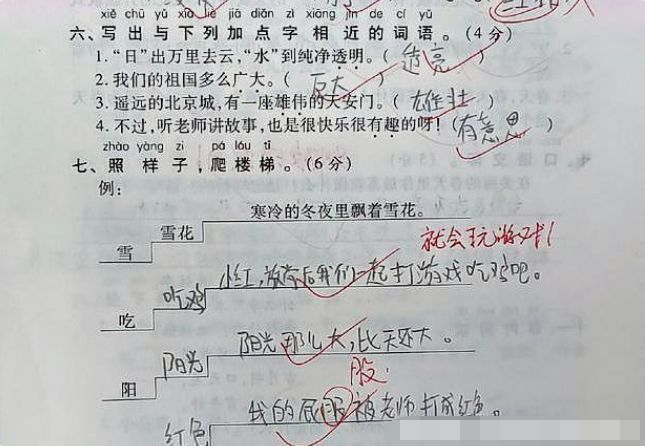 xiě chū yǔ xià liè jiā diǎn zì xiāng jìn de cí yǔ
六、写出与下列加点字相近的词语。(4分)
1. “日”出万里去云，“水”到纯净透明。(透亮)
2. 我们的祖国多么广大。(巨大)
3. 遥远的北京城，有一座雄伟的天安门。(雄壮)
4. 不过，听老师讲故事，也是很快乐很有趣的呀！(有意思)
zhào yàng zi pá lóu tī
七、照样子，爬楼梯。(6分)
例：
寒冷的冬夜里飘着雪花。
雪花
雪
就会玩游戏！
小红，放学后我们一起打游戏吃鸡吧。
吃鸡
吃
阳光那么大，比天还大。
阳光
阳
股
我的屁服被老师打成红色。
红色